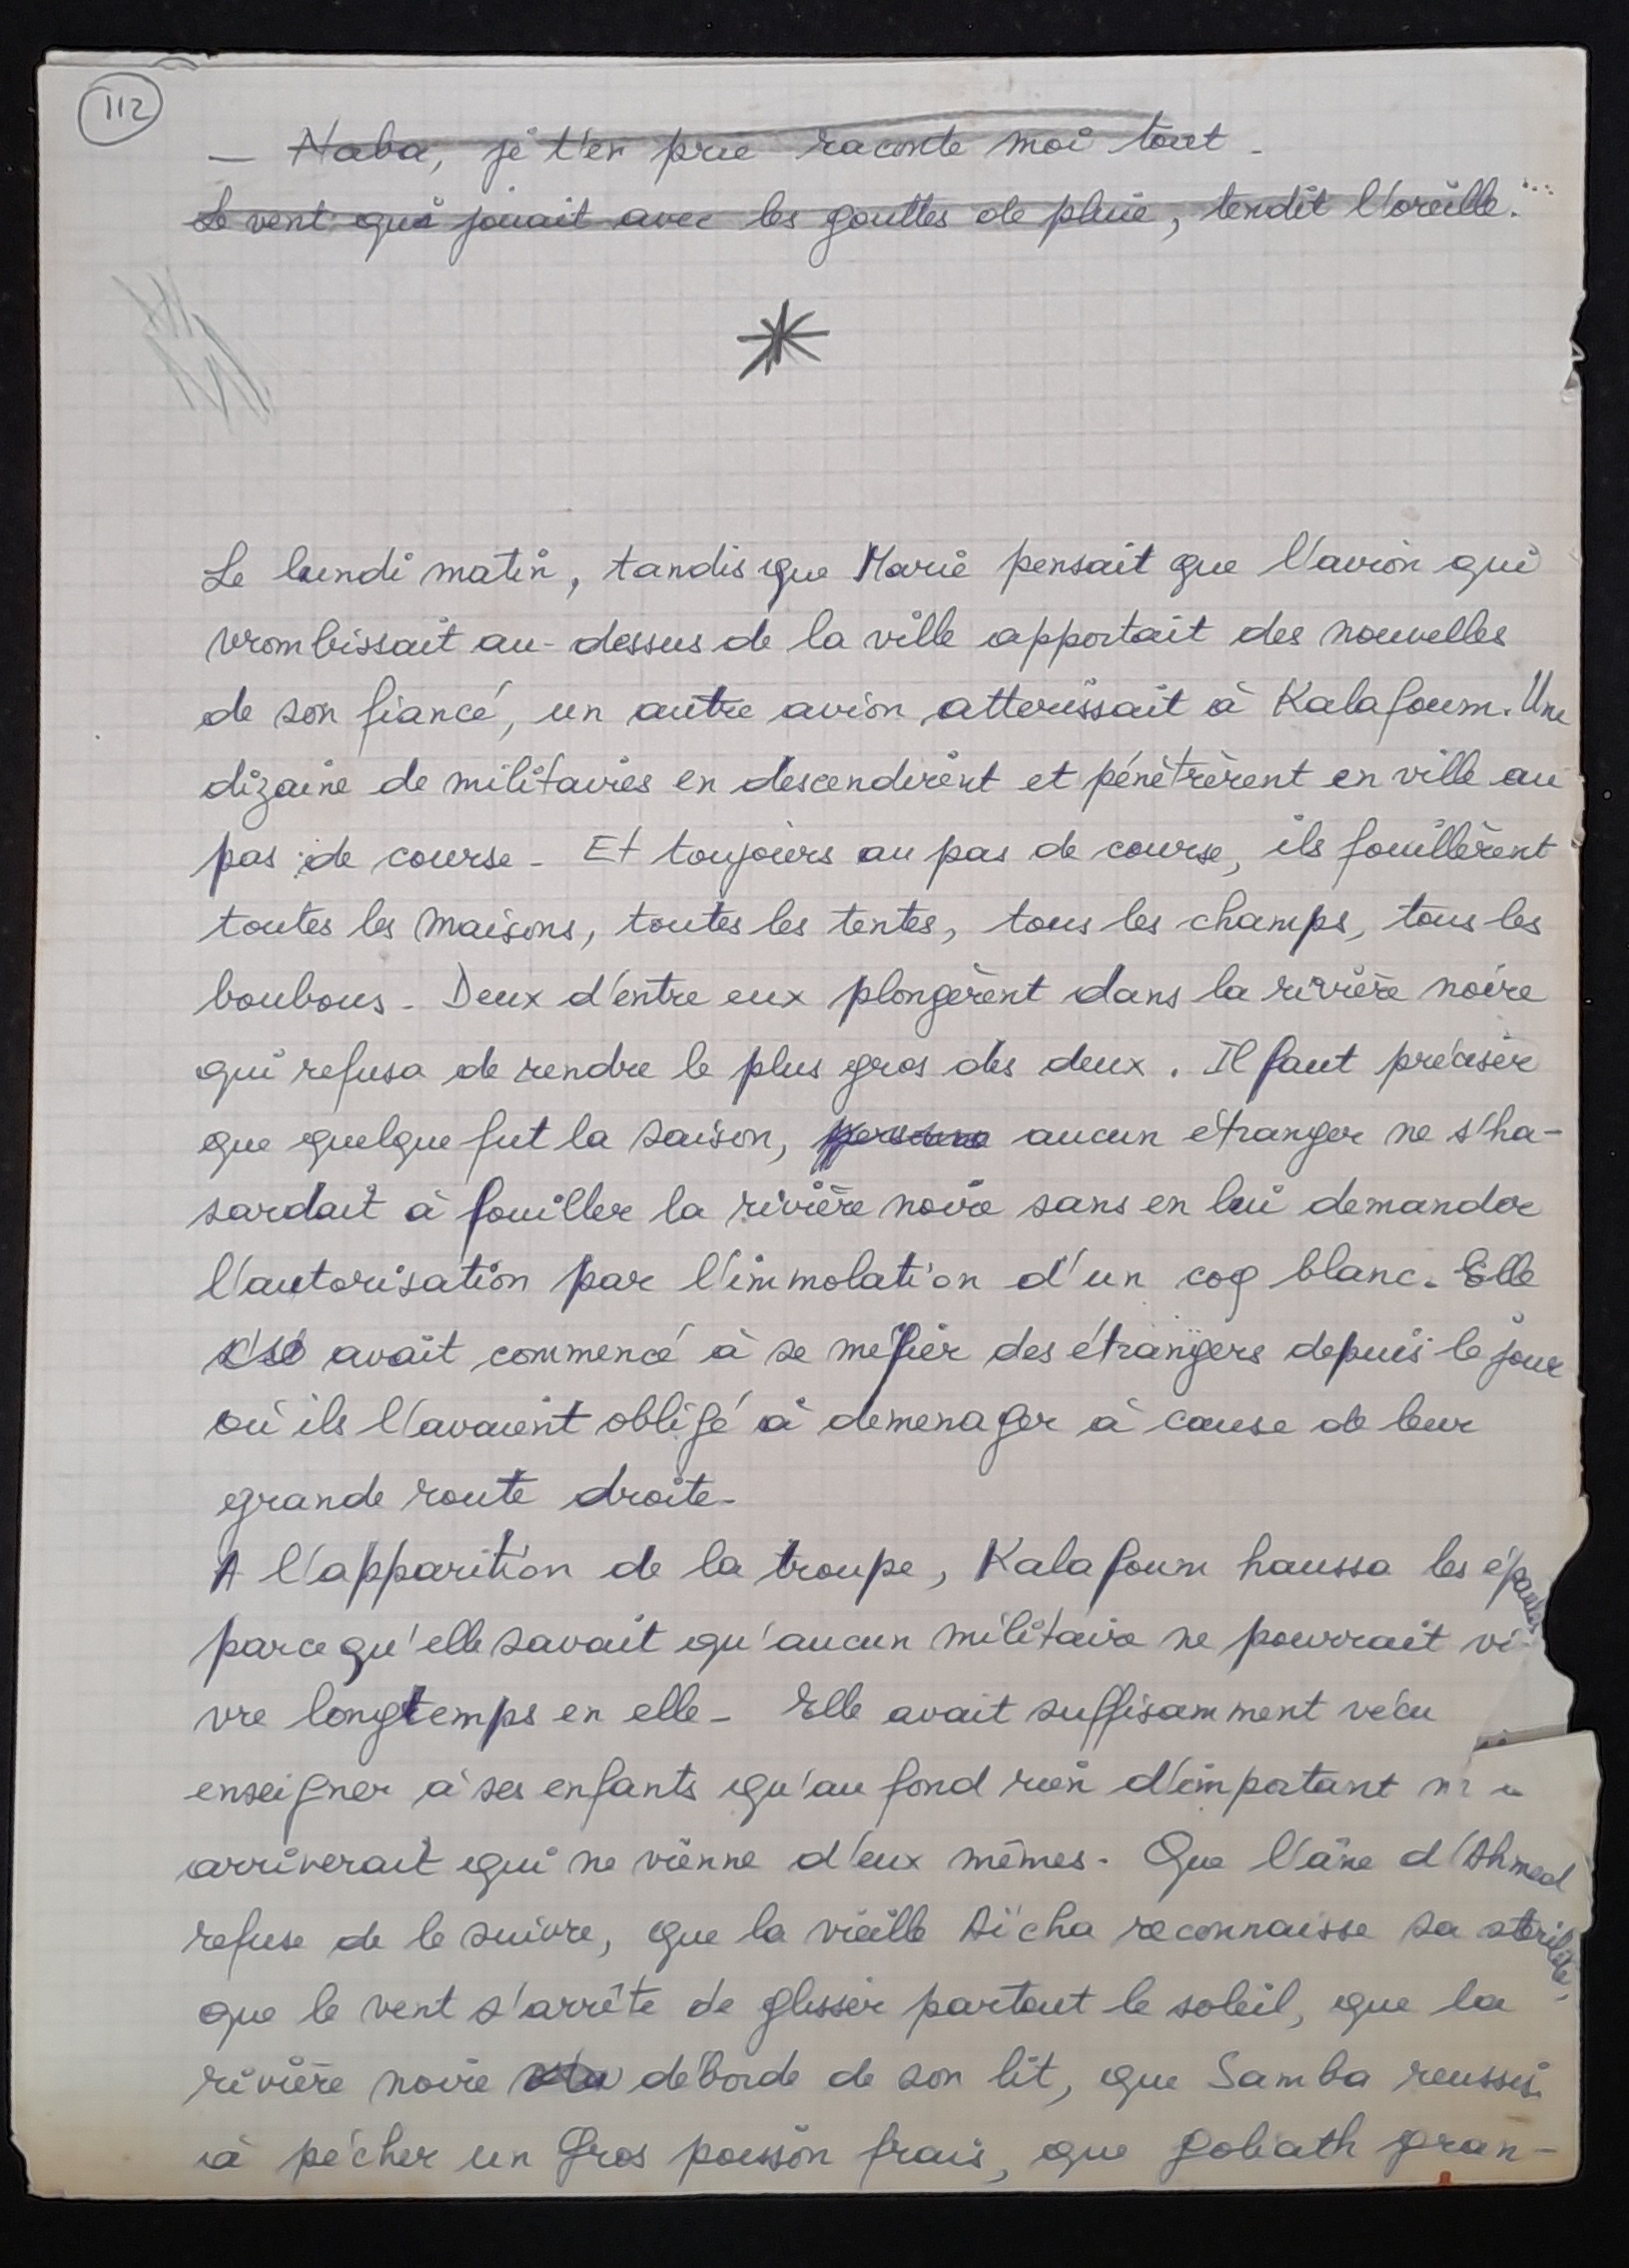 112
— Naba, je t'en prie raconte moi tout -
Le vent qui jouait avec les gouttes de pluie, tendit l'oreille...
Le lundi matin, tandis que Marie pensait que l'avion qui
vrombissait au-dessus de la ville apportait des nouvelles
de son fiancé, un autre avion atterissait à Kalafoum. Une
dizaine de militaires en descendirent et pénètrèrent en ville au
pas de course - Et toujours au pas de course, ils fouillèrent
toutes les maisons, toutes les tentes, tous les champs, tous les
boubous - Deux d'entre eux plongèrent dans la rivière noire
qui refusa de rendre le plus gros des deux. Il faut préciser
que quelque fut la saison, aucun étranger ne s'ha-
sardait à fouiller la rivière noire sans en lui demander
l'autorisation par l'immolation d'un coq blanc. Elle
avait commencé à se méfier des étrangers depuis le jour
où ils l'avaient obligé à demenager à cause de leur
grande route droite -
A l'apparition de la troupe, Kalafoum haussa les épaules
parce qu'elle savait qu'aucun militaire ne pourrait vi-
vre longtemps en elle - Elle avait suffisamment vécu
enseigner à ses enfants qu'au fond rien d'important
arriverait qui ne vienne d'eux mêmes. Que l'âne d'Ahmed
refuse de le suivre, que la vieille Aïcha reconnaisse sa sterilité,
que le vent s'arrête de glisser partout le soleil, que la
rivière noire déborde de son lit, que Samba
à pécher un gros poisson frais, que goliath gran-